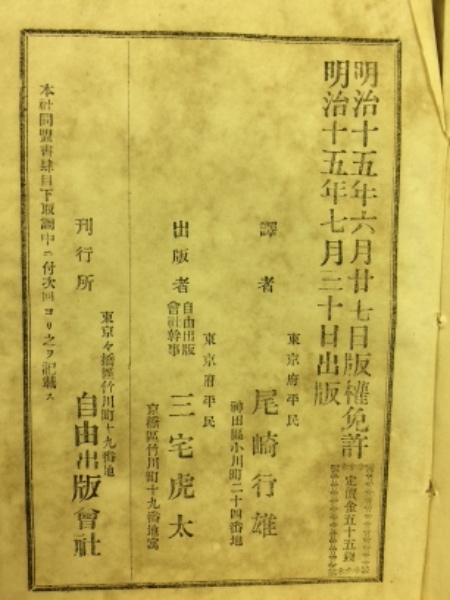 明治十五年六月廿七日版權免許
明治十五年七月三十日出版
定價金五十五錢
東京府平民
譯者 尾崎行雄
神田區小川町二十四番地
東京府平民
出版者 自由出版會社幹事 三宅虎太
京橋區竹川町十九番地寓
東京京橋區竹川町十九番地
刊行所 自由出版會社
本社同盟書肆目下取調中ニ付次回ヨリ之ヲ記載ス